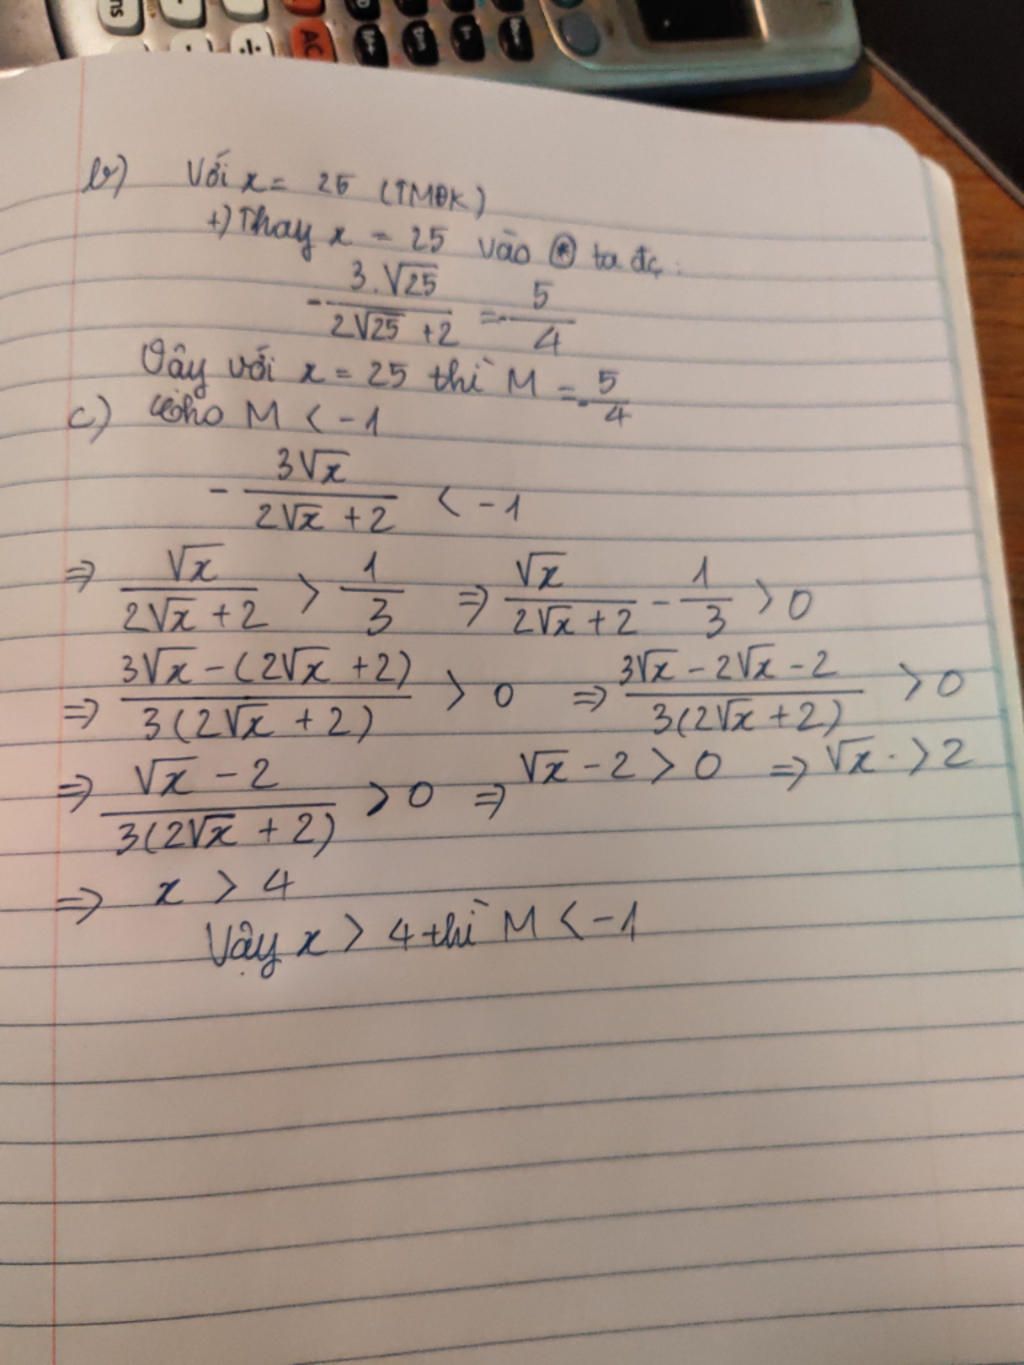 ns
AC
b) Với x = 25 (TMĐK)
+) Thay x = 25 vào (*) ta đc:
-3.√25/(2√25 + 2) = -5/4
Vậy với x = 25 thì M = -5/4
c) Cho M < -1
-3√x/(2√x + 2) < -1
⇒ √x/(2√x + 2) > 1/3 ⇒ √x/(2√x + 2) - 1/3 > 0
⇒ (3√x - (2√x + 2))/(3(2√x + 2)) > 0 ⇒ (3√x - 2√x - 2)/(3(2√x + 2)) > 0
⇒ (√x - 2)/(3(2√x + 2)) > 0 ⇒ √x - 2 > 0 ⇒ √x > 2
⇒ x > 4
Vậy x > 4 thì M < -1